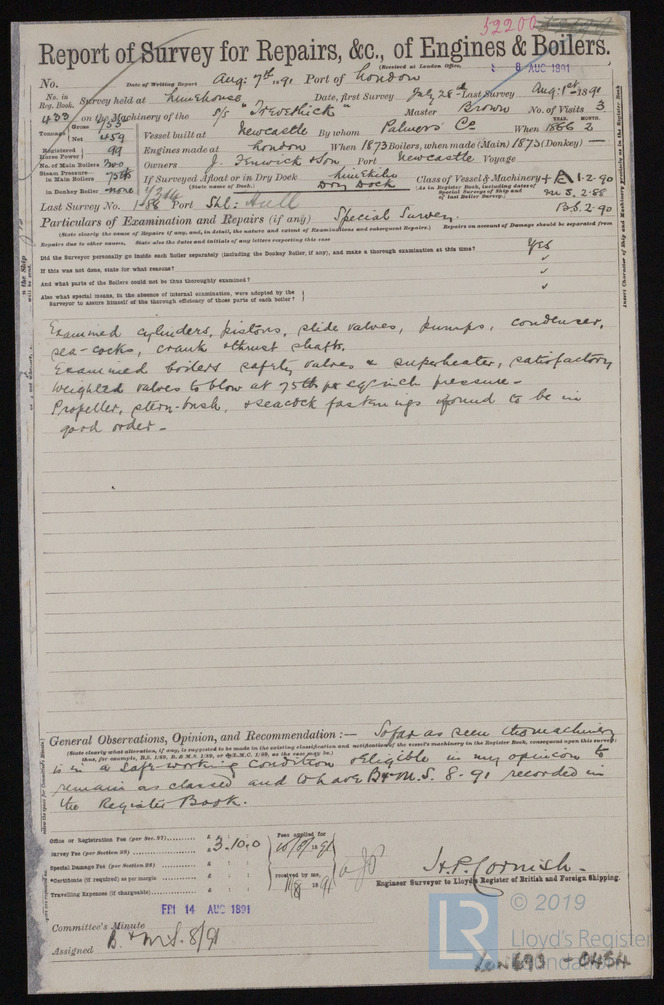 52200
Report of Survey for Repairs, &c., of Engines & Boilers.
(Received at London Office, 8 AUG 1891
No. Date of Writing Report Aug: 7th 1891 Port of London
No. in Reg. Book. Survey held at Limehouse Date, first Survey July 28th Last Survey Aug: 1st 1891
433 on the Machinery of the S/S "Trevethick" Master Brown No. of Visits 3
Tonnage Gross Net 459 Vessel built at Newcastle By whom Palmers' Co When 1866 YEAR. MONTH. 2
Registered Horse Power 99 Engines made at London When 1873 Boilers, when made (Main) 1873 (Donkey) —
No. of Main Boilers two Owners J. Fenwick & Son Port Newcastle Voyage
Steam Pressure in Main Boilers 75 lb If Surveyed Afloat or in Dry Dock Limekiln Dry Dock Class of Vessel & Machinery + A 1-2-90
(State name of Dock.) (As in Register Book, including dates of Special Surveys of Ship and of last Boiler Survey.) M S. 2-88
in Donkey Boiler none
Last Survey No. Port Shl: Hull B.S. 2-90
Particulars of Examination and Repairs (if any) Special Survey.
(State clearly the cause of Repairs if any, and, in detail, the nature and extent of Examinations and subsequent Repairs.) Repairs on account of Damage should be separated from
Repairs due to other causes. State also the dates and initials of any letters respecting this case
Did the Surveyor personally go inside each Boiler separately (including the Donkey Boiler, if any), and make a thorough examination at this time? Yes
If this was not done, state for what reasons?
And what parts of the Boilers could not be thus thoroughly examined?
Also what special means, in the absence of internal examination, were adopted by the Surveyor to assure himself of the thorough efficiency of those parts of each boiler?
Examined cylinders, pistons, slide valves, pumps, condenser,
sea-cocks, crank & thrust shafts.
Examined boilers safety valves & superheater, satisfactory
Weighted valves to blow at 75 lb per sq inch pressure -
Propeller, stern-bush, & seacock fastenings found to be in
good order -
General Observations, Opinion, and Recommendation :— So far as seen this machinery
(State clearly what alteration, if any, is suggested to be made in the existing classification and notification of the vessel's machinery in the Register Book, consequent upon this survey;
thus, for example, B.S. 1/89, B. & M.S. 1/89, or L.M.C. 1/89, as the case may be.)
is in a safe working condition & eligible in my opinion to
remain as classed and to have B & M.S. 8-91 recorded in
the Register Book.
Office or Registration Fee (per Sec. 27) £ : :
Survey Fee (per Section 28) £ 3.10.0
Special Damage Fee (per Section 28) £ : :
*Certificate (if required) as per margin £ : :
Travelling Expenses (if chargeable) £ : :
Fees applied for
10/8/1891
received by me,
11/8 1891
H.P. Cornish.
Engineer Surveyor to Lloyd's Register of British and Foreign Shipping.
FRI 14 AUG 1891
Committee's Minute
Assigned B. & M.S. 8/91
Insert Character of Ship and Machinery precisely as in the Register Book
LR
© 2019
Lloyd's Register
Foundation
Lon 693 - 0454